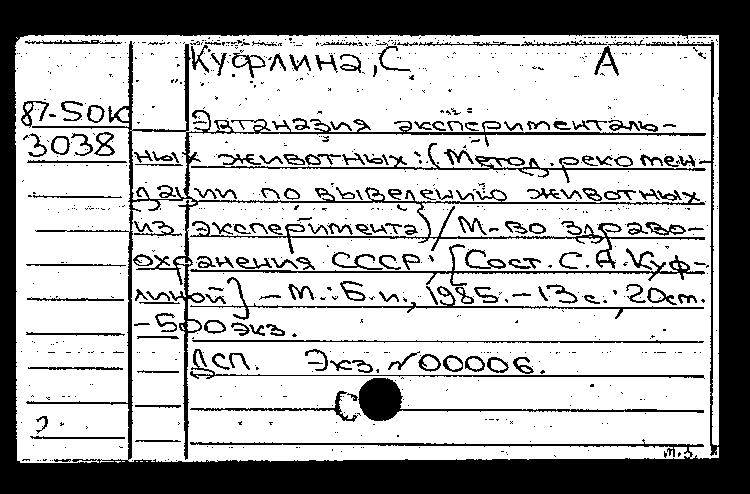 Куфлина, С А
87-50К
3038
Эвтаназия эксперименталь-
ных животных: (Метод. рекомен-
дации по выведению животных
из эксперимента) / М-во здраво-
охранения СССР; [Сост. С. А. Куф-
линой] - М.: Б.и., 1985. - 13 с.; 20 см.
- 500 экз.
ДСП. Экз. №00006.